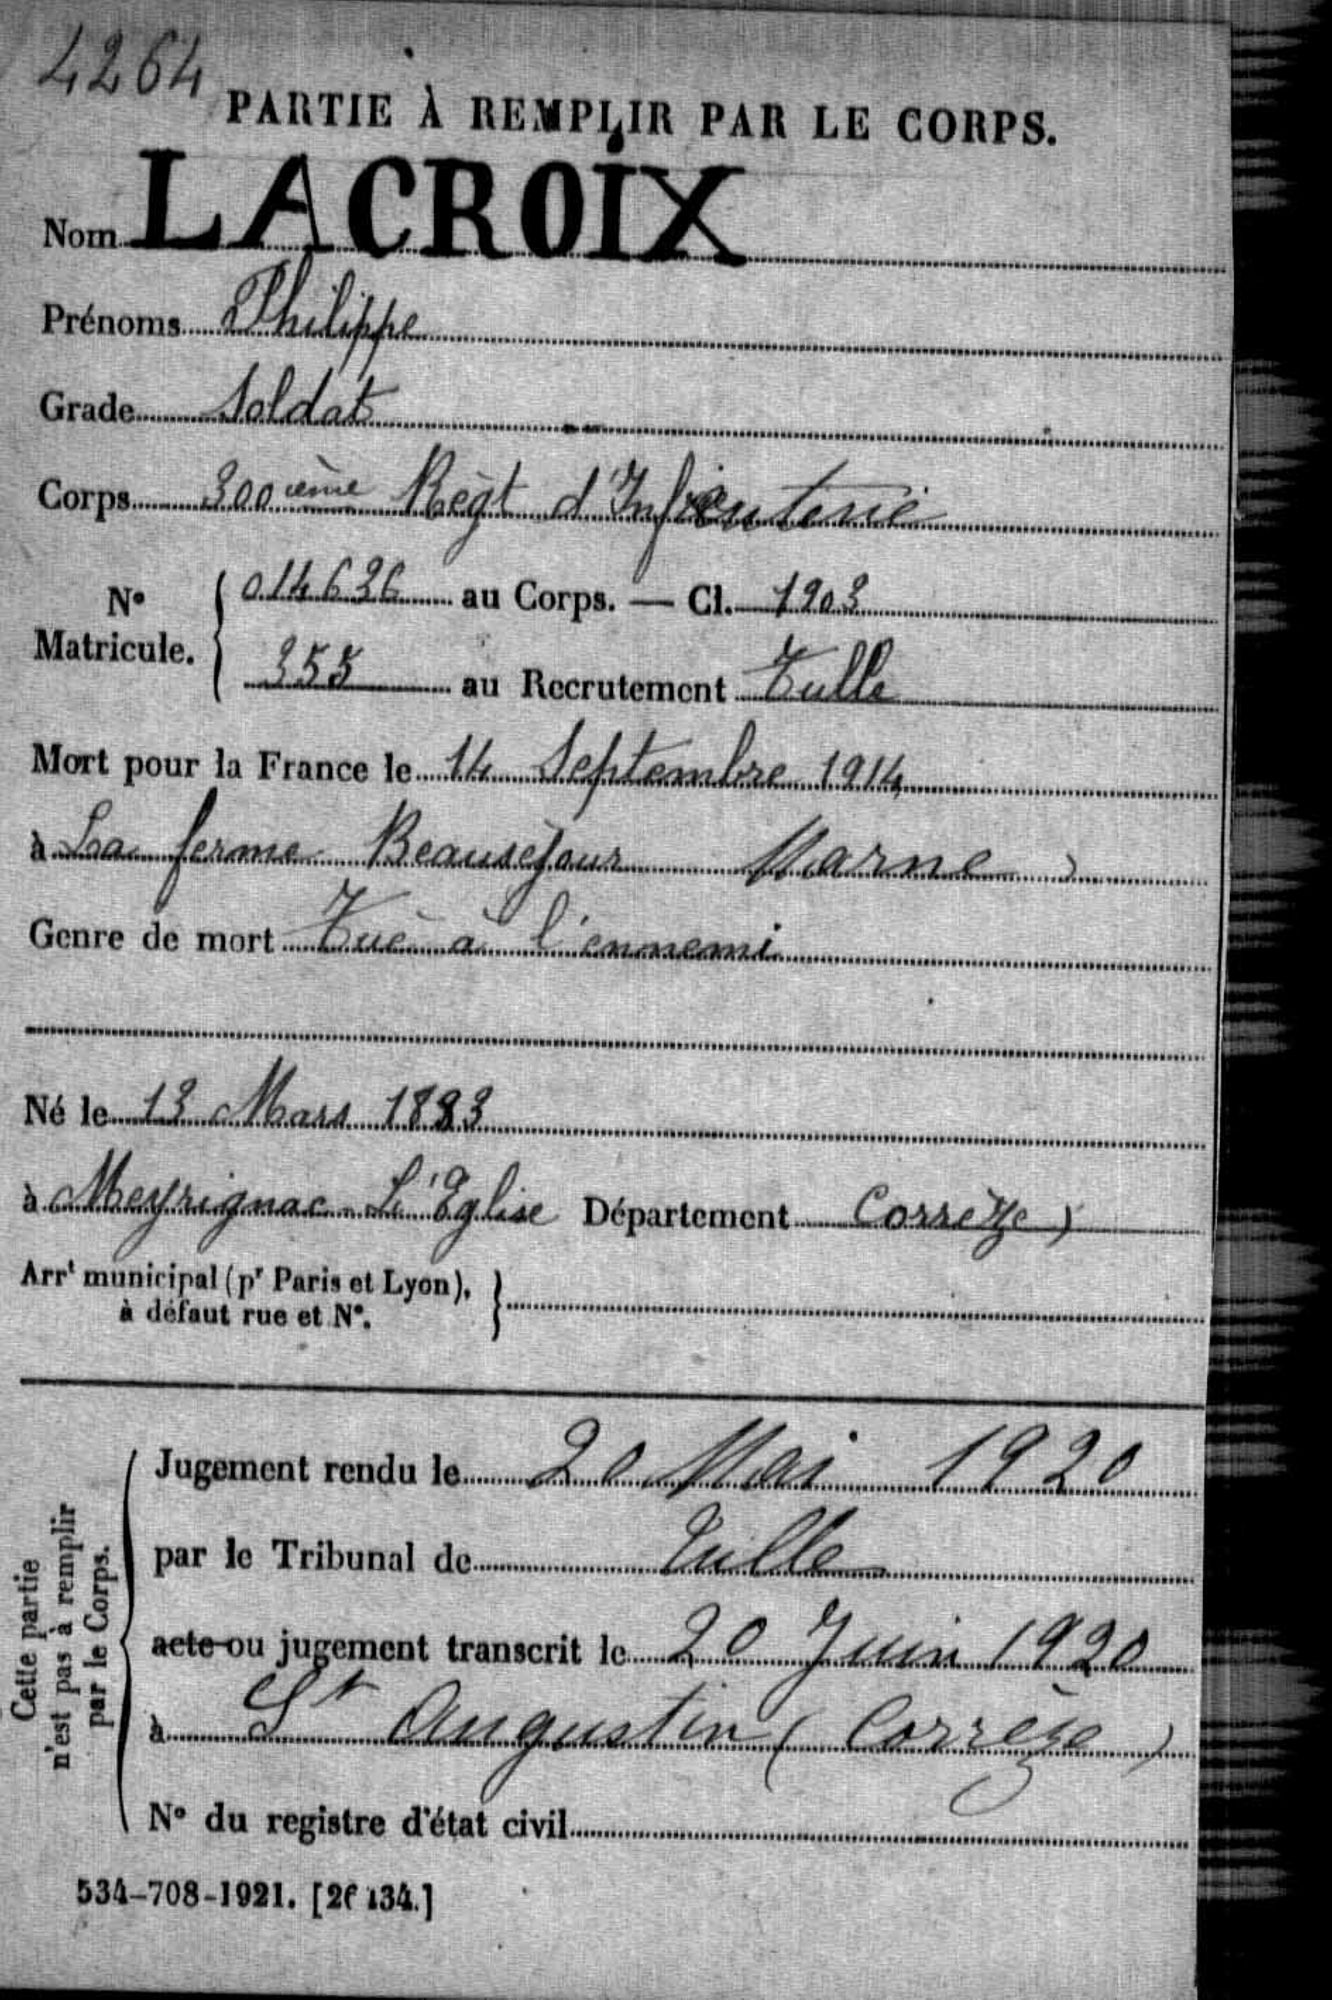 4264
PARTIE À REMPLIR PAR LE CORPS.
Nom LACROIX
Prénoms Philippe
Grade Soldat
Corps 300ième Règt d'Infanterie
N° Matricule. { 014636 au Corps. — Cl. 1903
355 au Recrutement Tulle
Mort pour la France le 14 Septembre 1914
à La ferme Beauséjour Marne )
Genre de mort Tué à l'ennemi
Né le 13 Mars 1883
à Meyrignac-L'Eglise Département Corrèze )
Arrt municipal (pr Paris et Lyon), }
à défaut rue et N°.
Cette partie
n'est pas à remplir
par le Corps.
Jugement rendu le 20 Mai 1920
par le Tribunal de Tulle
acte ou jugement transcrit le 20 Juin 1920
à St Augustin (Corrèze)
N° du registre d'état civil
534-708-1921. [26134.]